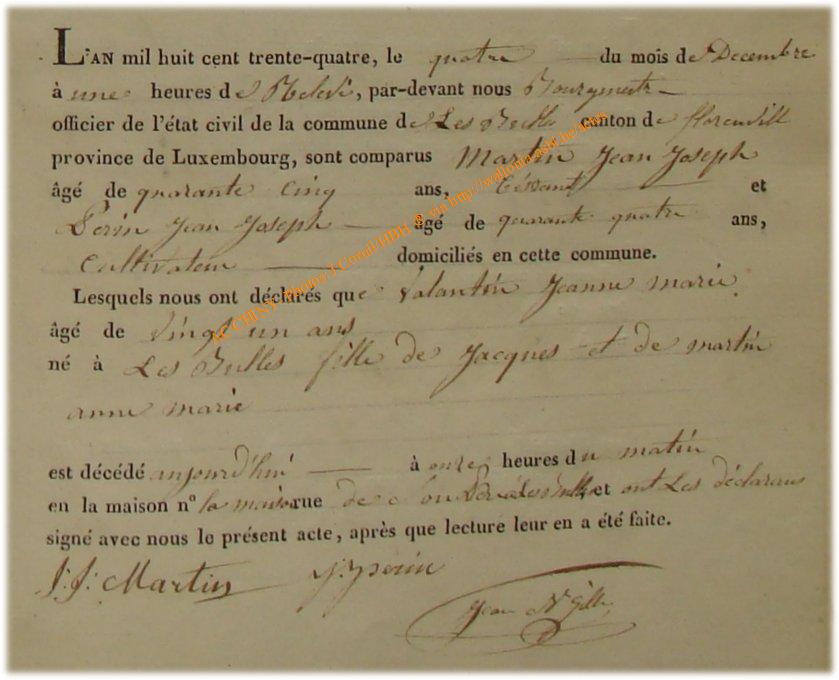 L'AN mil huit cent trente-quatre, le quatre du mois de Decembre
à une heures de Relevé, par-devant nous Bourgmestre
officier de l'état civil de la commune de Les Bulles canton de florenvill
province de Luxembourg, sont comparus Martin Jean Joseph
âgé de quarante cinq ans, et
Perin Jean Joseph âgé de quarante quatre ans,
Cultivateur domiciliés en cette commune.
Lesquels nous ont déclarés que Valantin Jeanne marie
âgé de vingt un ans
né à Les Bulles fille de Jacques et de martin
anne marie
est décédé aujourd'hui à onze heures du matin
en la maison n° la maison rue de Les Bulles et ont Les déclarans
signé avec nous le présent acte, après que lecture leur en a été faite.
J. J. Martin J. J perin
Jean N Gille